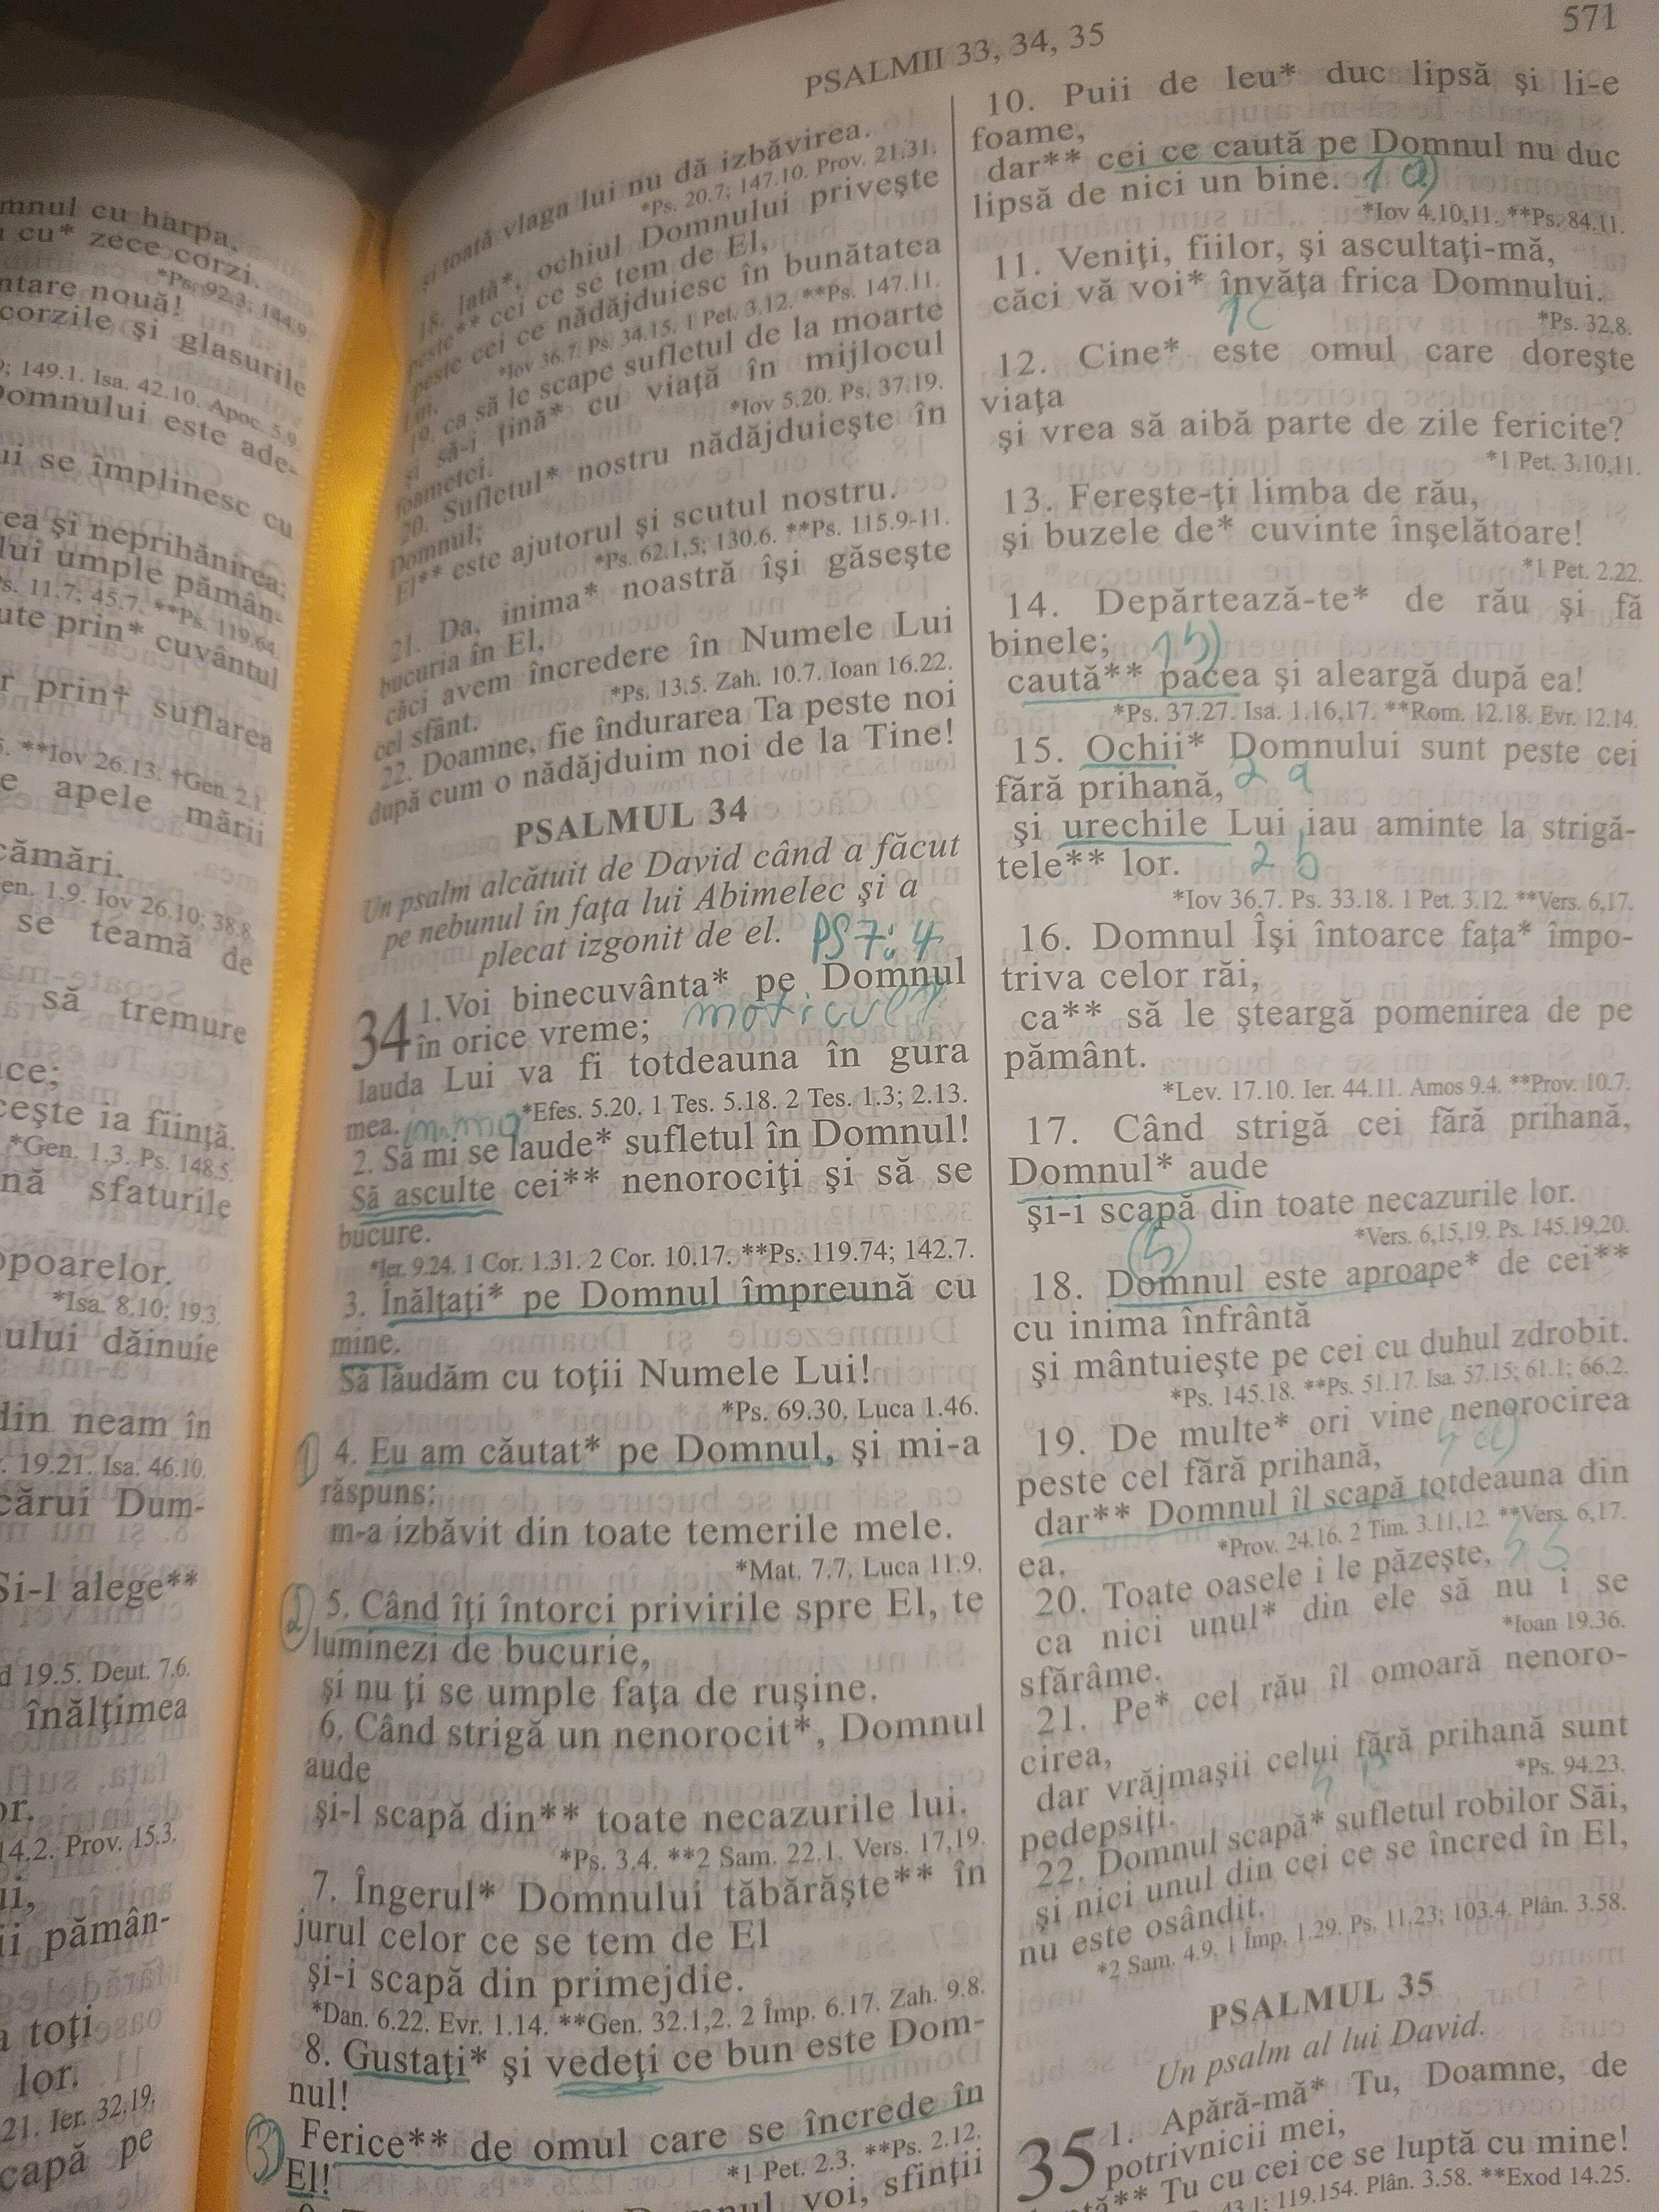 571
PSALMII 33, 34, 35
mnul cu harpa.
cu* zece corzi.
*Ps. 92.3; 144.9.
ntare nouă!
corzile şi glasurile
149.1. Isa. 42.10. Apoc. 5.9.
Domnului este ade-
ui se împlinesc cu
tea şi neprihănirea;
lui umple pămân-
s. 11.7; 45.7. **Ps. 119.64.
ute prin* cuvântul
r prin† suflarea
**Iov 26.13. †Gen. 2.1.
e apele mării
cămări.
en. 1.9. Iov 26.10; 38.8.
se teamă de
să tremure
ce;
ceşte ia fiinţă.
*Gen. 1.3. Ps. 148.5.
nă sfaturile
opoarelor.
*Isa. 8.10; 19.3.
ului dăinuie
din neam în
19.21. Isa. 46.10.
cărui Dum-
Şi-l alege**
d 19.5. Deut. 7.6.
înălţimea
or.
14.2. Prov. 15.3.
ui,
ii pămân-
a toţi
lor.
21. Ier. 32.19.
capă pe
şi toată vlaga lui nu dă izbăvirea.
*Ps. 20.7; 147.10. Prov. 21.31.
18. Iată*, ochiul Domnului priveşte
peste** cei ce se tem de El,
peste cei ce nădăjduiesc în bunătatea
Lui,
*Iov 36.7. Ps. 34.15. 1 Pet. 3.12. **Ps. 147.11.
19. ca să le scape sufletul de la moarte
şi să-i ţină* cu viaţă în mijlocul
foametei.
*Iov 5.20. Ps. 37.19.
20. Sufletul* nostru nădăjduieşte în
Domnul;
El** este ajutorul şi scutul nostru.
*Ps. 62.1,5; 130.6. **Ps. 115.9-11.
21. Da, inima* noastră îşi găseşte
bucuria în El,
căci avem încredere în Numele Lui
cel sfânt.
*Ps. 13.5. Zah. 10.7. Ioan 16.22.
22. Doamne, fie îndurarea Ta peste noi
după cum o nădăjduim noi de la Tine!
PSALMUL 34
Un psalm alcătuit de David când a făcut
pe nebunul în faţa lui Abimelec şi a
plecat izgonit de el.
PS 7:4
34 1.Voi binecuvânta* pe Domnul
în orice vreme;
lauda Lui va fi totdeauna în gura
mea.
*Efes. 5.20. 1 Tes. 5.18. 2 Tes. 1.3; 2.13.
2. Să mi se laude* sufletul în Domnul!
Să asculte cei** nenorociţi şi să se
bucure.
*Ier. 9.24. 1 Cor. 1.31. 2 Cor. 10.17. **Ps. 119.74; 142.7.
3. Înălţaţi* pe Domnul împreună cu
mine.
Să lăudăm cu toţii Numele Lui!
*Ps. 69.30. Luca 1.46.
1
4. Eu am căutat* pe Domnul, şi mi-a
răspuns;
m-a izbăvit din toate temerile mele.
*Mat. 7.7. Luca 11.9.
2
5. Când îţi întorci privirile spre El, te
luminezi de bucurie,
şi nu ţi se umple faţa de ruşine.
6. Când strigă un nenorocit*, Domnul
aude
şi-l scapă din** toate necazurile lui.
*Ps. 3.4. **2 Sam. 22.1. Vers. 17,19.
7. Îngerul* Domnului tăbărăşte** în
jurul celor ce se tem de El
şi-i scapă din primejdie.
*Dan. 6.22. Evr. 1.14. **Gen. 32.1,2. 2 Împ. 6.17. Zah. 9.8.
8. Gustaţi* şi vedeţi ce bun este Dom-
nul!
3
Ferice** de omul care se încrede în
El!
*1 Pet. 2.3. **Ps. 2.12.
voi, sfinţii
10. Puii de leu* duc lipsă şi li-e
foame,
dar** cei ce caută pe Domnul nu duc
lipsă de nici un bine.
1 a)
*Iov 4.10,11. **Ps. 84.11.
11. Veniţi, fiilor, şi ascultaţi-mă,
căci vă voi* învăţa frica Domnului.
1c
*Ps. 32.8.
12. Cine* este omul care doreşte
viaţa
şi vrea să aibă parte de zile fericite?
*1 Pet. 3.10,11.
13. Fereşte-ţi limba de rău,
şi buzele de* cuvinte înşelătoare!
*1 Pet. 2.22.
14. Depărtează-te* de rău şi fă
binele;
1b)
caută** pacea şi aleargă după ea!
*Ps. 37.27. Isa. 1.16,17. **Rom. 12.18. Evr. 12.14.
15. Ochii* Domnului sunt peste cei
fără prihană,
2 a
şi urechile Lui iau aminte la strigă-
tele** lor.
2 b
*Iov 36.7. Ps. 33.18. 1 Pet. 3.12. **Vers. 6,17.
16. Domnul Îşi întoarce faţa* împo-
triva celor răi,
ca** să le şteargă pomenirea de pe
pământ.
*Lev. 17.10. Ier. 44.11. Amos 9.4. **Prov. 10.7.
17. Când strigă cei fără prihană,
Domnul* aude
şi-i scapă din toate necazurile lor.
*Vers. 6,15,19. Ps. 145.19,20.
18. Domnul este aproape* de cei**
cu inima înfrântă
şi mântuieşte pe cei cu duhul zdrobit.
*Ps. 145.18. **Ps. 51.17. Isa. 57.15; 61.1; 66.2.
19. De multe* ori vine nenorocirea
peste cel fără prihană,
dar** Domnul îl scapă totdeauna din
ea.
*Prov. 24.16. 2 Tim. 3.11,12. **Vers. 6,17.
20. Toate oasele i le păzeşte,
ca nici unul* din ele să nu i se
sfărâme.
*Ioan 19.36.
21. Pe* cel rău îl omoară nenoro-
cirea,
dar vrăjmaşii celui fără prihană sunt
pedepsiţi.
*Ps. 94.23.
22. Domnul scapă* sufletul robilor Săi,
şi nici unul din cei ce se încred în El,
nu este osândit.
*2 Sam. 4.9. 1 Împ. 1.29. Ps. 11.23; 103.4. Plân. 3.58.
PSALMUL 35
Un psalm al lui David.
35 1. Apără-mă* Tu, Doamne, de
potrivnicii mei,
Tu cu cei ce se luptă cu mine!
43.1; 119.154. Plân. 3.58. **Exod 14.25.